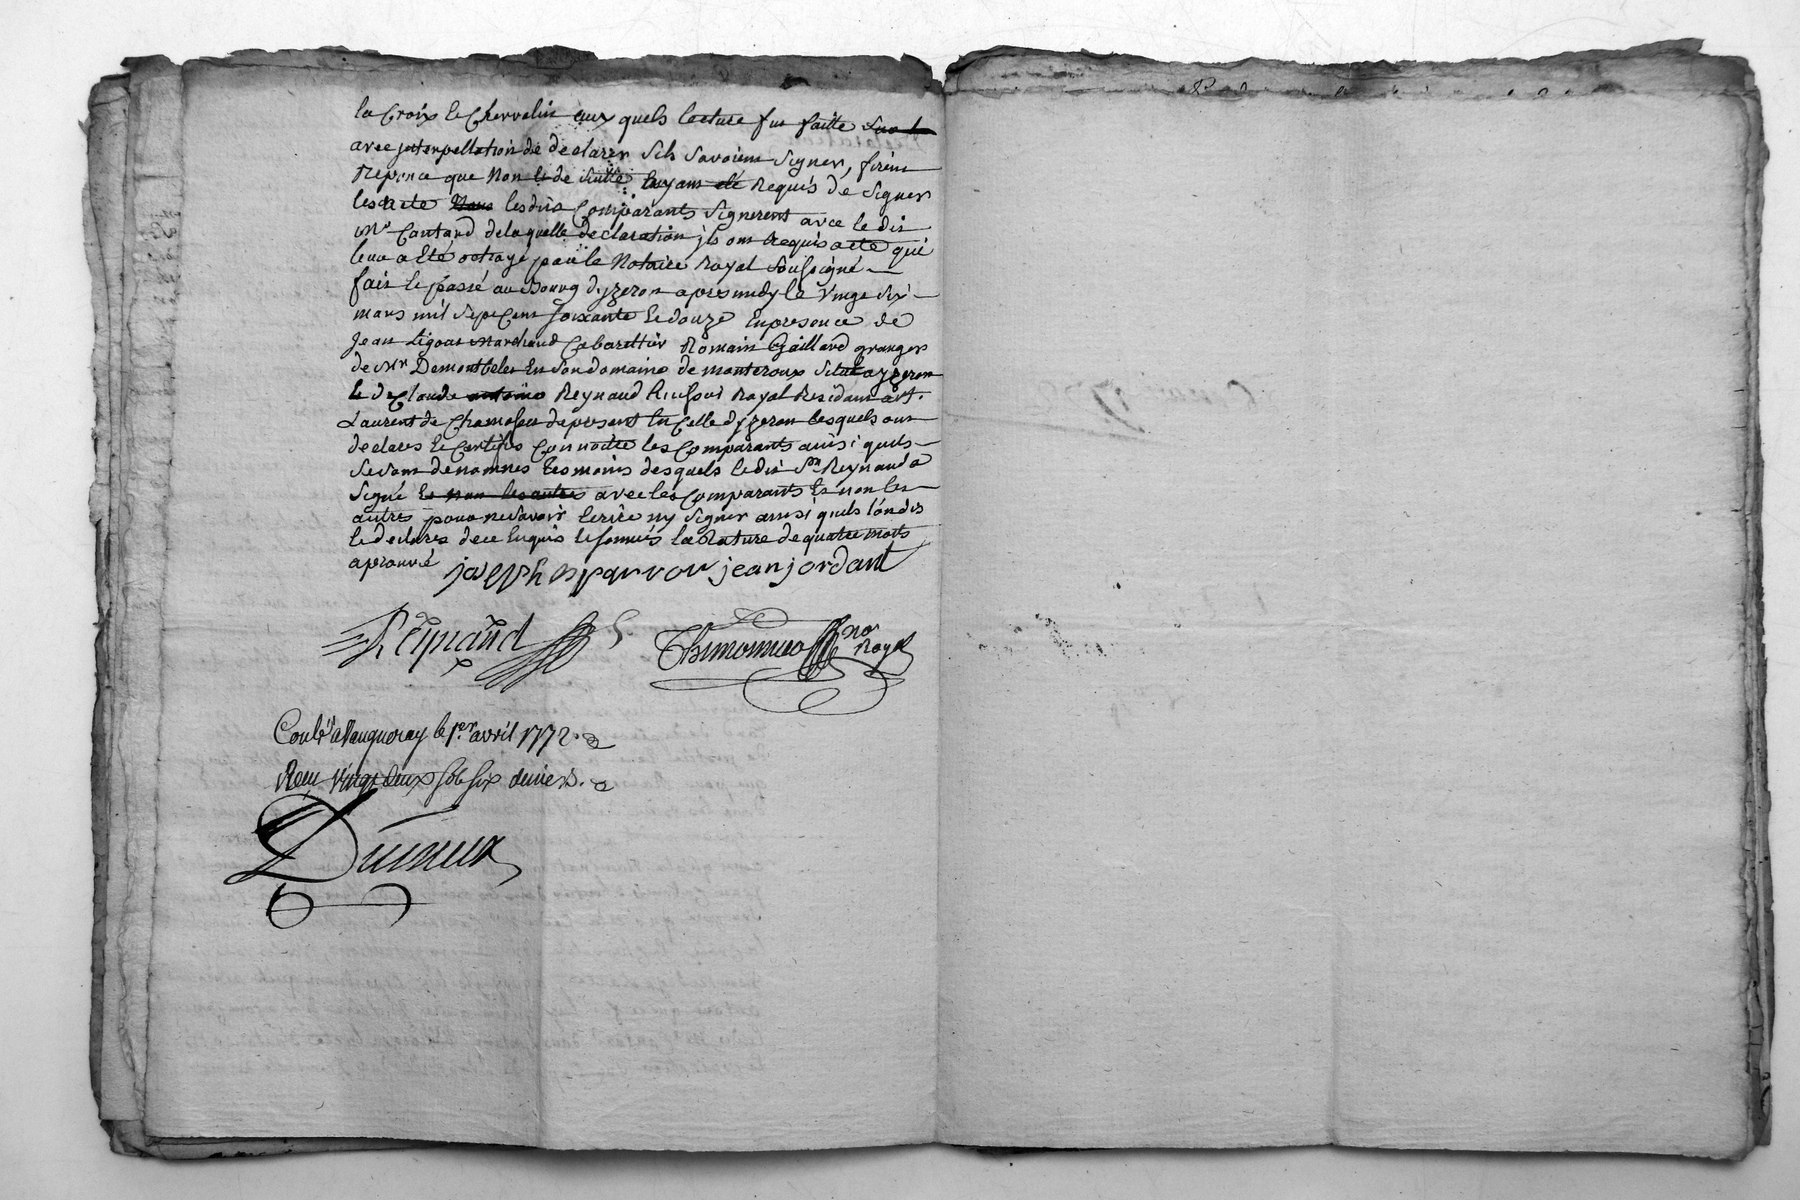 la Croix le Chervolin aux quels lecture fut faitte
avec jnterpellation de declarer Sils Savoient Signer, firent
Reponce que Non Et de Suitte Enyant eté Requis de Signer
lesdits Comparants Signerent avec le dit
Mr Cantard de laquelle declaration jls ont Requis acte qui
leur a Eté octroyé par le Notaire Royal Soussigné
fait Et passé au Bourg dyzeron apres midy le Vingt Six
mars mil Sept Cent Soixante Et douze En presence de
Jean Ligout Marchand Cabarettier Romain Gaillard granger
de Mr Demontbelet En Son domaine de monteroux Situé a yzeron
Et de Claude antoine Reynaud huissier Royal Residant a St.
Laurent de Chamosset de present En Celle dyzeron lesquels ont
declarés Et Certifiés Connoitre les Comparants ainsi quils
Se Sont denommes Temoins desquels le dit Sr Reynaud a
Signé Et non les autres avec les Comparants Et non les
autres pour ne Savoir Ecrire ny Signer ainsi quils l'on dit
Et declarés de ce Enquis Et Sommés la Rature de quatre mots
aprouvé
joseph esparron jean jordant
Reynaud
Thimonnier no. Royal
Conlé a Vaugneray le 1er. avril 1772.
Recu Vingt deux sols six deniers.
Dumeux